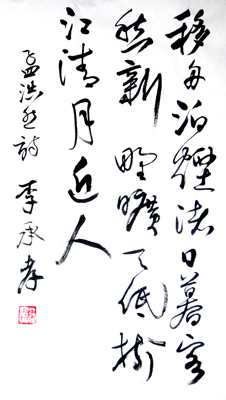 移舟泊煙渚日暮客
愁新野曠天低樹
江清月近人
孟浩然詩 李承孝